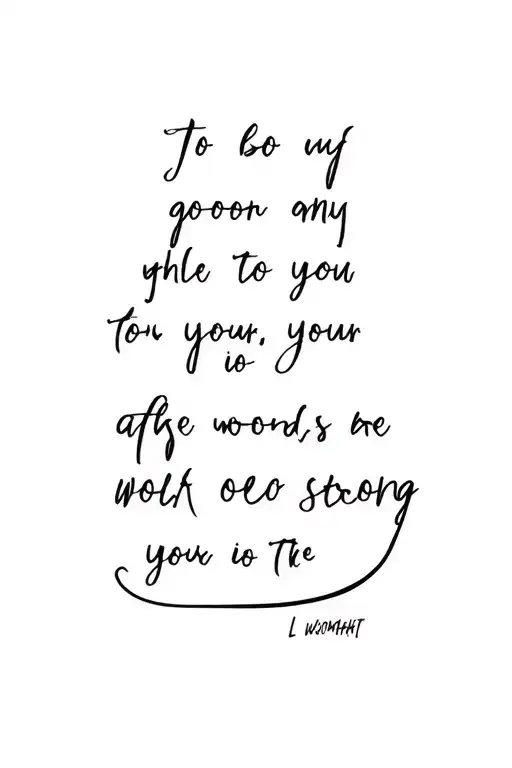 To bo my
gooor any
yhle to you
ton your, your
io
afke woord,s bre
wolk oeo stcong
your io The
L